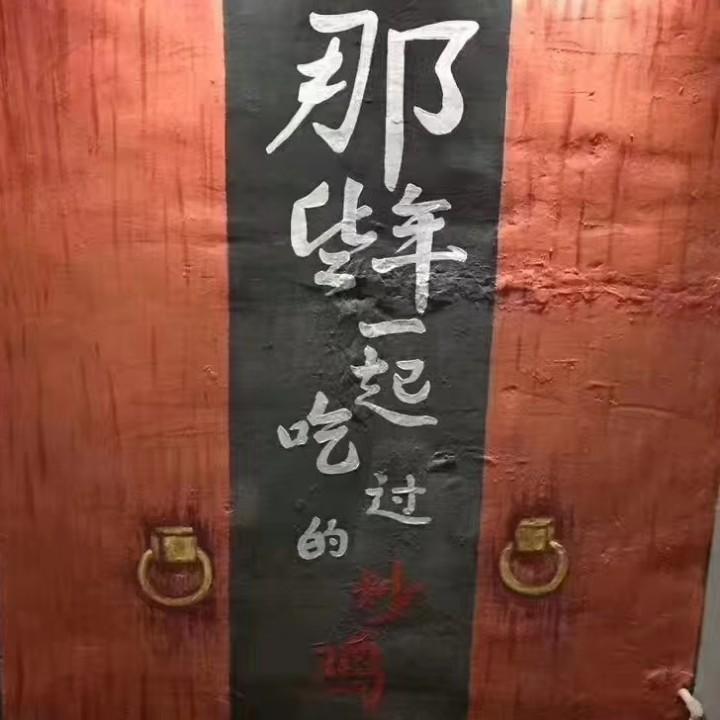 那些年
一起吃过的
炒鸡